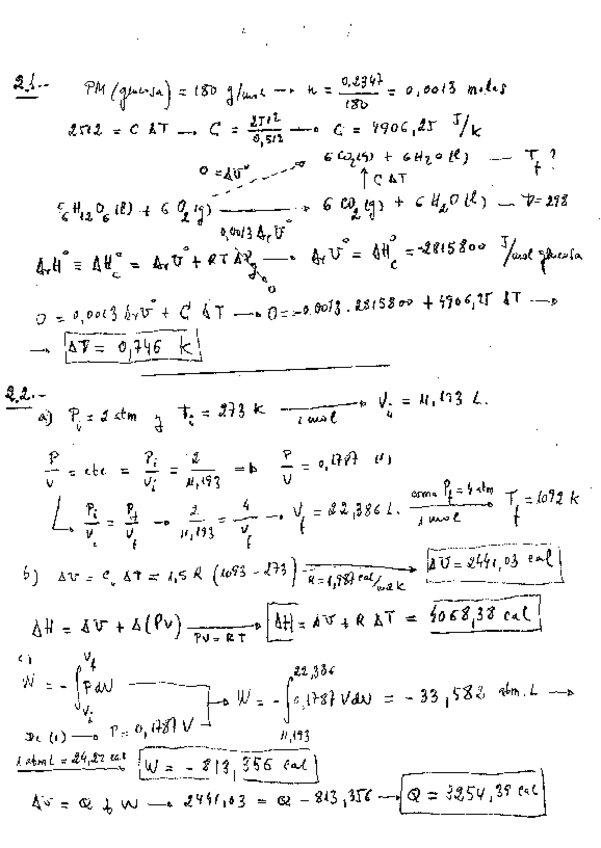 2.1.-- PM (glucosa) = 180 g/mol → n = 0,2347/180 = 0,0013 moles
2512 = C ΔT → C = 2512/0,512 → C = 4906,25 J/K
0 = ΔU° 6 CO2(g) + 6 H2O(l) — Tf ?
↑ C ΔT
C6H12O6(s) + 6 O2(g) → 6 CO2(g) + 6 H2O(l) — T=298
0,0013 ΔrU°
ΔrH° ≡ ΔHc° = ΔrU° + RT Δνg → ΔrU° = ΔHc° = -2815800 J/mol glucosa
0
0 = 0,0013 ΔrU° + C ΔT → 0 = -0.0013 · 2815800 + 4906,25 ΔT →
→ ΔT = 0,746 K
2.2.--
a) Pi = 2 atm y Ti = 273 K → 1 mol Vi = 11,193 L.
P/V = cte = Pi/Vi = 2/11,193 ⇒ P/V = 0,1787 (1)
Pi/Vi = Pf/Vf → 2/11,193 = 4/Vf → Vf = 22,386 L. como Pf = 4 atm 1 mol → Tf = 1092 K
b) ΔU = Cv ΔT = 1,5 R (1093 - 273) R = 1,987 cal/mol K → ΔU = 2441,03 cal
ΔH = ΔU + Δ(PV) PV = RT → ΔH = ΔU + R ΔT = 4068,38 cal
c)
W = - ∫Vi Vf P dV → W = - ∫11,193 22,386 0,1787 V dV = -33,582 atm.L →
De (1) → P = 0,1787 V
1 atm L = 24,22 cal W = - 813,356 cal
ΔU = Q + W → 2441,03 = Q - 813,356 → Q = 3254,39 cal